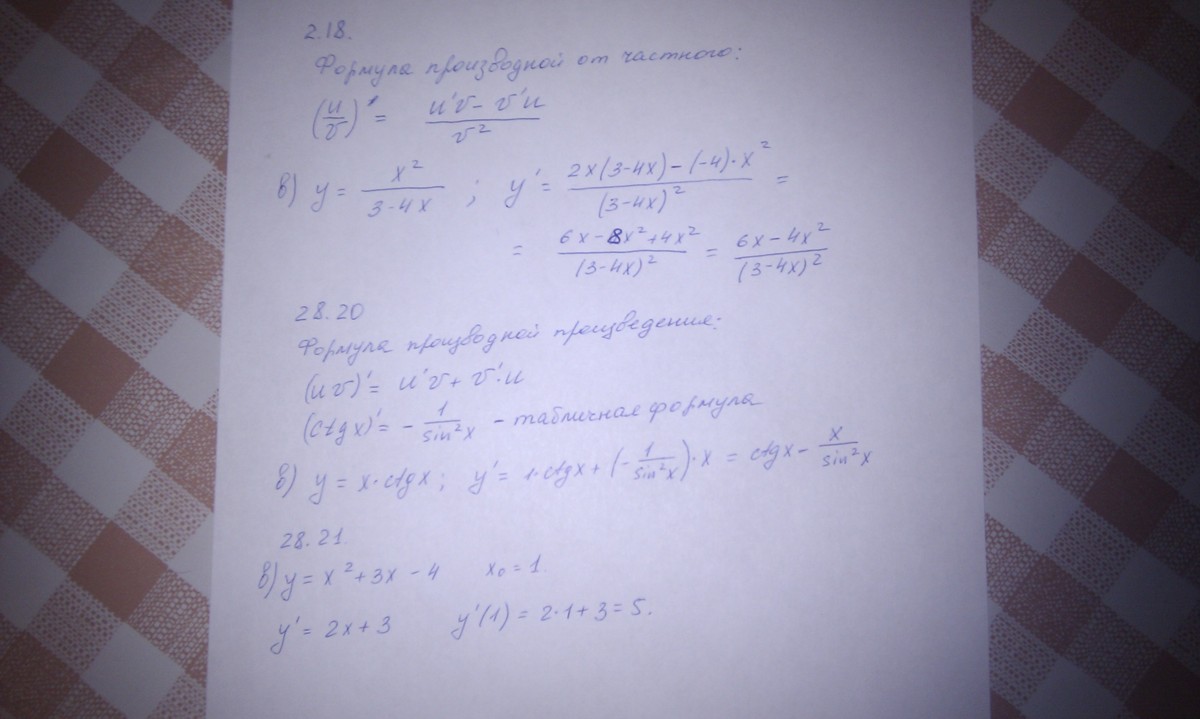 2.18.
Формула производной от частного:
(u/v)' = (u'v - v'u)/v²
в) y = x²/(3-4x) ; y' = (2x(3-4x)-(-4)·x²)/(3-4x)² =
= (6x-8x²+4x²)/(3-4x)² = (6x-4x²)/(3-4x)²
28.20
Формула производной произведения:
(uv)' = u'v + v'·u
(ctgx)' = - 1/sin²x - табличная формула
в) y = x·ctgx ; y' = 1·ctgx + (-1/sin²x)·x = ctgx - x/sin²x
28.21.
в) y = x² + 3x - 4 x₀ = 1.
y' = 2x + 3 y'(1) = 2·1 + 3 = 5.